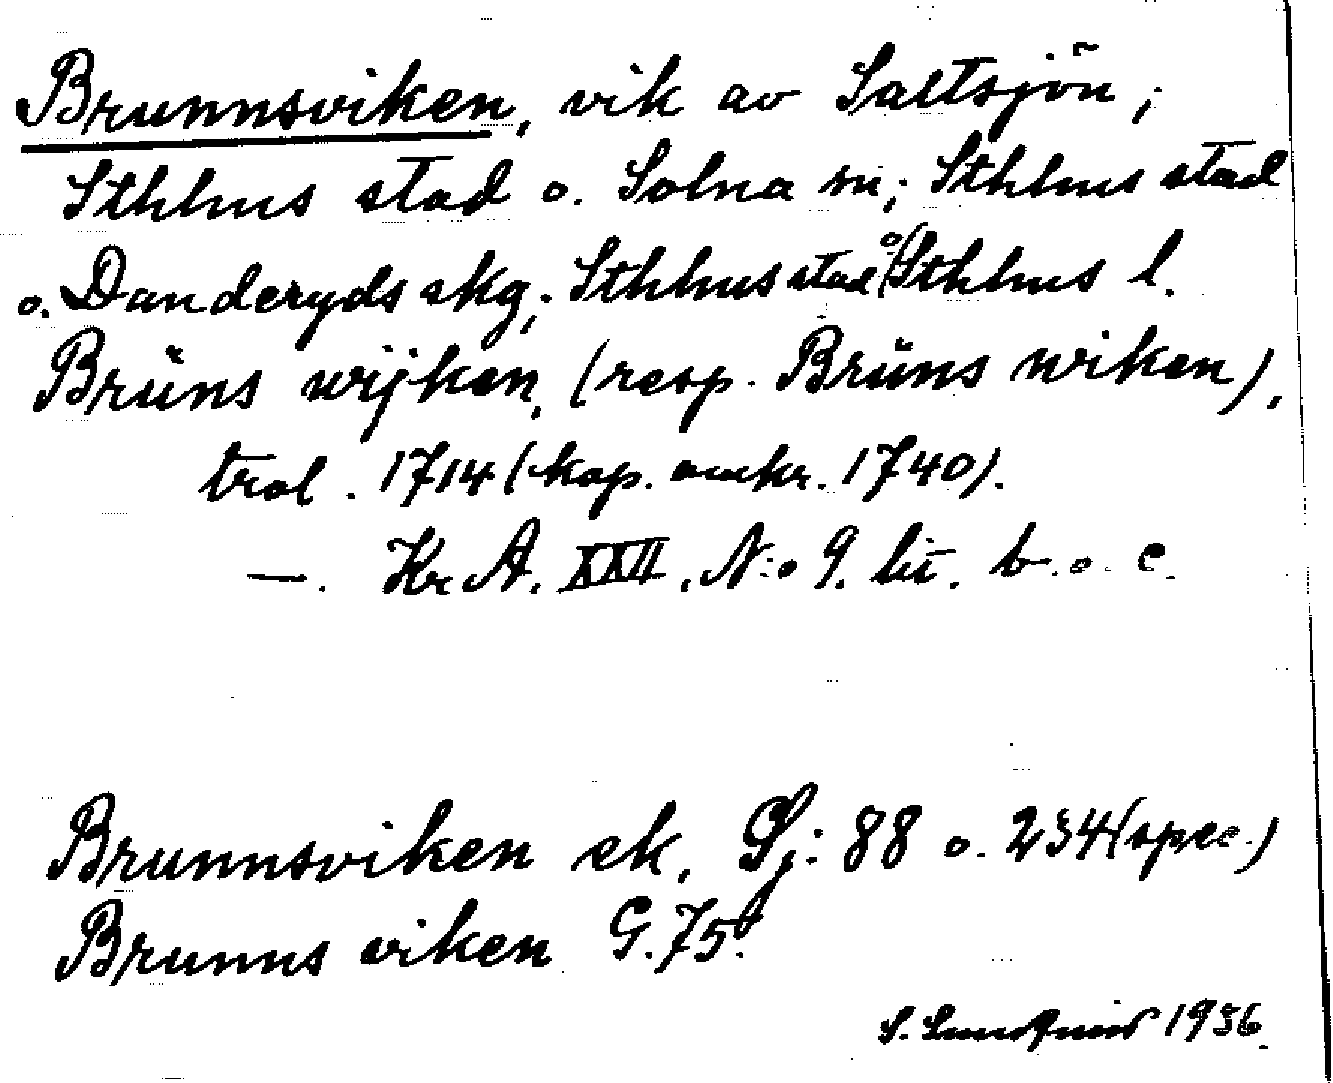 Brunnsviken, vik av Saltsjön;
Sthlms stad o. Solna sn; Sthlms stad
o. Danderyds skg; Sthlms stad o Sthlms l.
Brüns wijken, (resp. Brüns wiken),
trol. 1714 (kop. omkr. 1740).
—. KrA. XXII, N:o 9. lit. b. o. c.
Brunnsviken ek, Sj: 88 o. 234 (spec.)
Brunns viken G. 75.
S. 1936